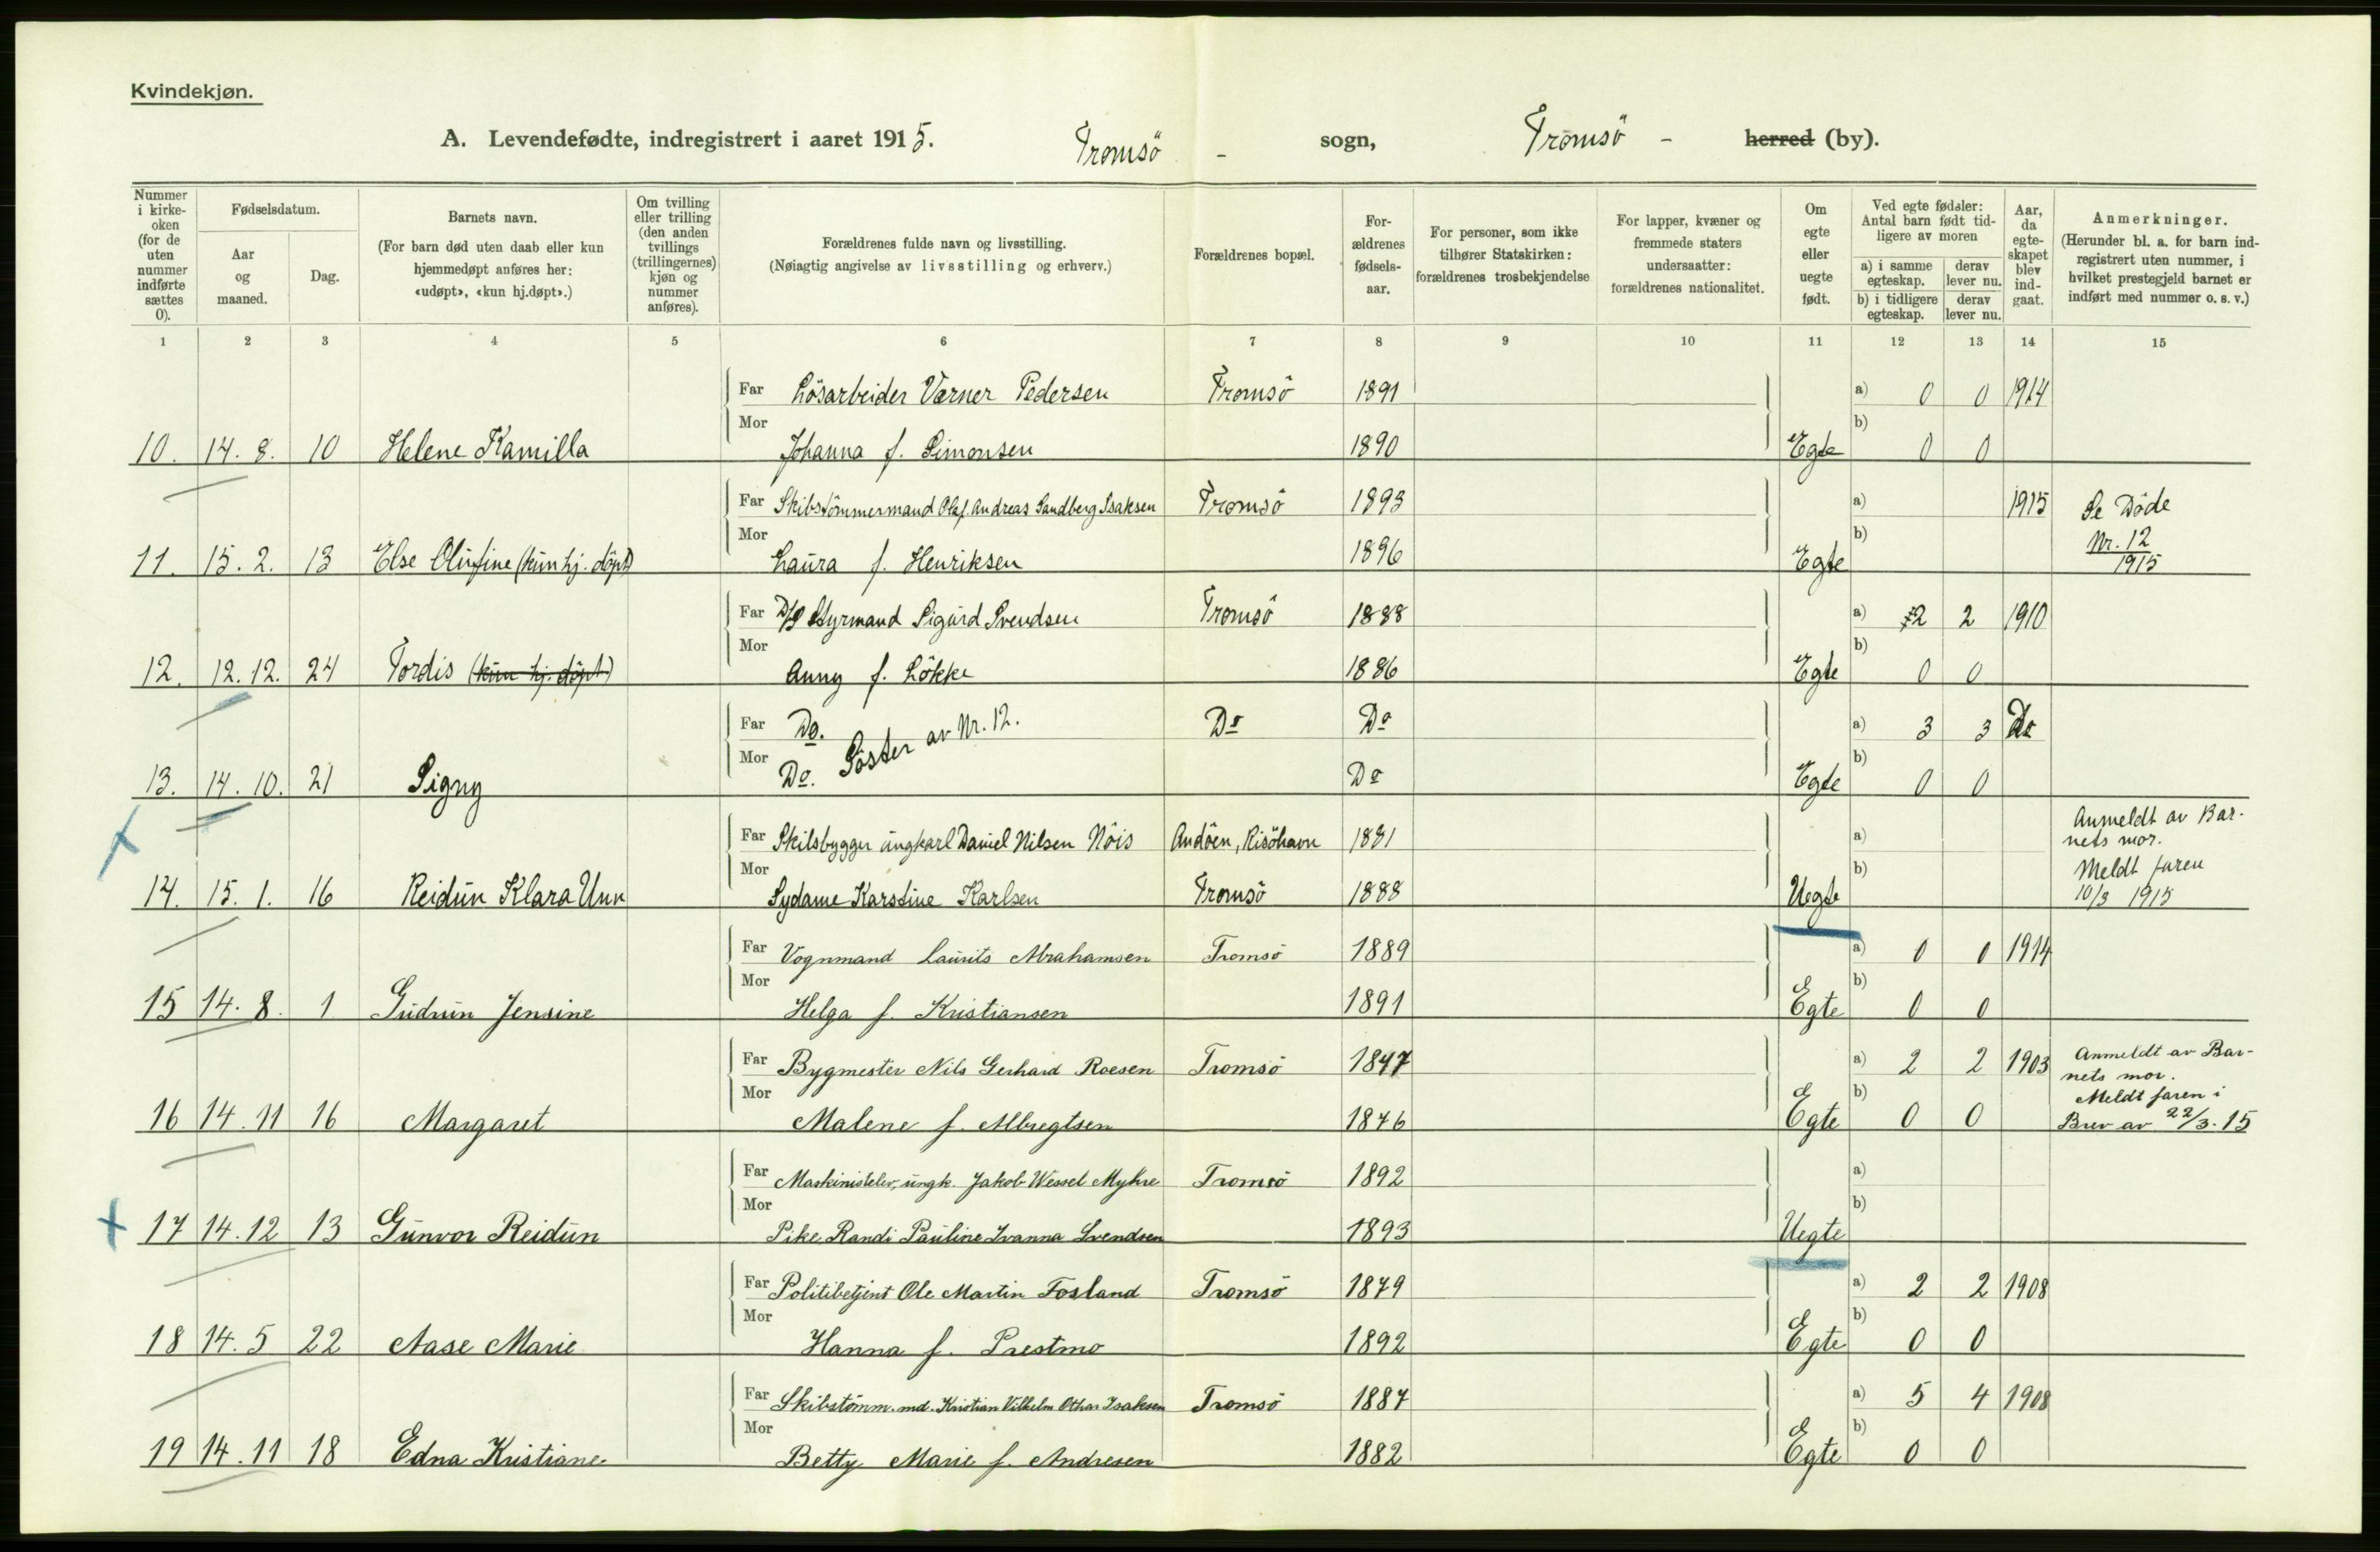 Kvindekjøn.
A. Levendefødte, indregistrert i aaret 1915. Tromsö - sogn, Tromsö - herred (by).
Nummer i kirke-oken (for de uten nummer indførte sættes 0).
Fødselsdatum.
Aar og maaned.
Dag.
Barnets navn.
(For barn død uten daab eller kun hjemmedøpt anføres her: «udøpt», «kun hj.døpt».)
Om tvilling eller trilling (den anden tvillings (trillingernes) kjøn og nummer anføres).
Forældrenes fulde navn og livsstilling.
(Nøiagtig angivelse av livsstilling og erhverv.)
Forældrenes bopæl.
For-ældrenes fødsels-aar.
For personer, som ikke tilhører Statskirken: forældrenes trosbekjendelse
For lapper, kvæner og fremmede staters undersaatter: forældrenes nationalitet.
Om egte eller uegte født.
Ved egte fødsler: Antal barn født tid-ligere av moren
a) i samme egteskap. derav lever nu.
b) i tidligere egteskap. derav lever nu.
Aar, da egte-skapet blev ind-gaat.
Anmerkninger.
(Herunder bl. a. for barn ind-registrert uten nummer, i hvilket prestegjeld barnet er indført med nummer o. s. v.)
1 2 3 4 5 6 7 8 9 10 11 12 13 14 15
Far Lösarbeider Værner Pedersen Tromsö 1891 a) 0 0 1914
Mor b)
10. 14. 8. 10 Helene Kamilla Johanna f. Simonsen 1890 Egte 0 0
Far Skibstömmermand Olaf Andreas Sandberg Isaksen Tromsö 1893 a) 1915 Se Döde
Mor b) Nr. 12
11. 15. 2. 13 Else Olufine (kun hj. döpt) Laura f. Henriksen 1896 Egte 1915
Far D/S Styrmand Sigurd Svendsen Tromsö 1888 a) 2 2 1910
Mor b)
12. 12. 12. 24 Tordis (kun hj. döpt) Anny f. Lökke 1886 Egte 0 0
Far Do. Söster av Nr. 12. Do Do a) 3 3 Do
Mor b)
13. 14. 10. 21 Signy Do. Do Egte 0 0
Far Skibsbygger ungkarl Daniel Nilsen Nöis Andöen, Risöhavn 1881 a) Anmeldt av Bar-
nets mor.
Mor b) Meldt faren
14. 15. 1. 16 Reidun Klara Unn Sydame Karstine Karlsen Tromsö 1888 Uegte 10/3 1915
Far Vognmand Laurits Abrahamsen Tromsö 1889 a) 0 0 1914
Mor b)
15 14. 8. 1 Gudrun Jensine Helga f. Kristiansen 1891 Egte 0 0
Far Bygmester Nils Gerhard Roesen Tromsö 1877 a) 2 2 1903 Anmeldt av Bar-
nets mor.
Mor b) Meldt faren i
16 14. 11 16 Margaret Malene f. Albregtsen 1876 Egte 0 0 Brev av 22/3. 15
Far Maskinistelev, ungk. Jakob Wessel Myhre Tromsö 1892 a)
Mor b)
17 14. 12 13 Gunvor Reidun Pike Randi Pauline Ivanna Svendsen 1893 Uegte
Far Politibetjent Ole Martin Fosland Tromsö 1879 a) 2 2 1908
Mor b)
18 14. 5 22 Aase Marie Hanna f. Prestmo 1892 Egte 0 0
Far Skibstömm.md. Kristian Vilhelm Othar Isaksen Tromsö 1887 a) 5 4 1908
Mor b)
19 14. 11 18 Edna Kristiane Betty Marie f. Andresen 1882 Egte 0 0